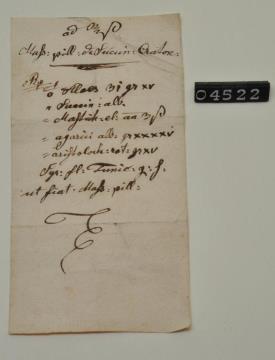 ad ℥ß
Mass: pill: de Succin: Craton:
Rp
Aloes ʒi gr xv
Succin: alb:
Mastich: el: aa ʒß
agarici alb: gr xxxxvi
aristoloch: rot: gr xv
Syr: fl: Tunic: q: s:
ut fiat Mass: pill:
04522